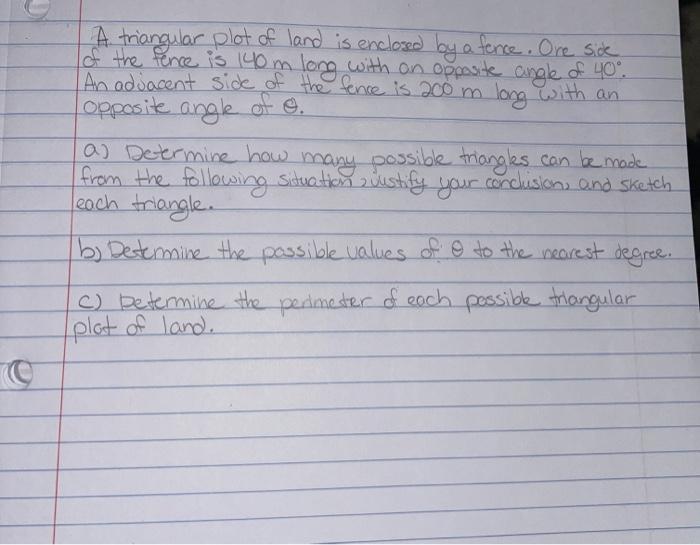 A triangular plot of land is enclosed by a fence. One side
of the fence is 140 m long with an opposite angle of 40°.
An adjacent side of the fence is 200 m long with an
opposite angle of θ.
a) Determine how many possible triangles can be made
from the following situation, justify your conclusion, and sketch
each triangle.
b) Determine the possible values of θ to the nearest degree.
c) Determine the perimeter of each possible triangular
plot of land.